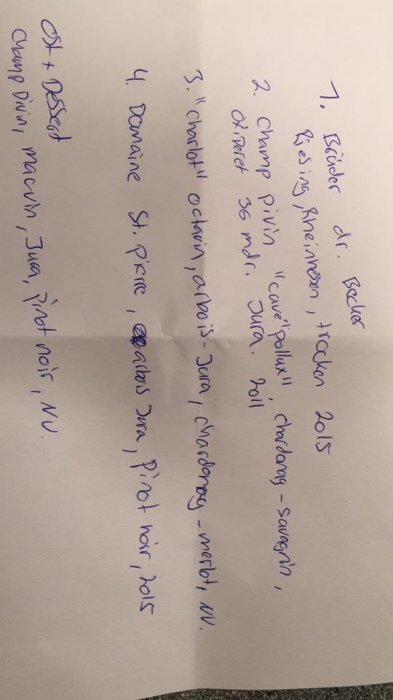 1. Brüder dr. Becker
Riesing, Rheinhessen, trocken 2015
2. Champ Divin, "cuvé" pollux", chardonay - savagnin,
Oxideret 36 mdr. Jura. 2011
3. "Charlot" octavin, arbois - Jura, chardonnay - merlot, NV.
4. Domaine St. Pierre, arbois Jura, Pinot noir, 2015
Ost + Dessert
Champ Divin, macvin, Jura, pinot noir, NV.